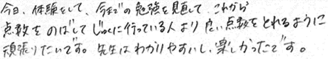 今日、体験をして、今までの勉強を見直して、これから
点数をのばしてじゅくに行っている人より良い点数をとれるように
頑張りたいです。先生はわかりやすいし、楽しかったです。